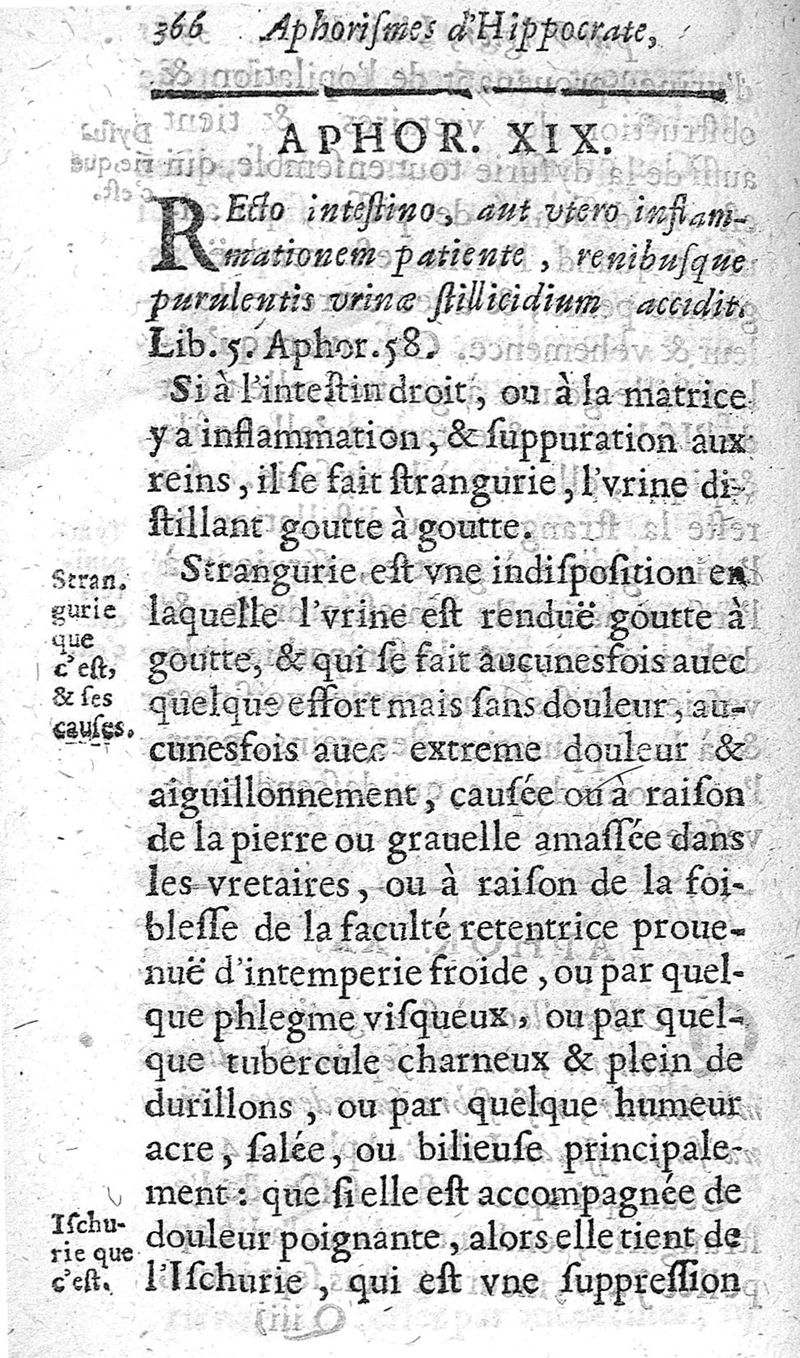 366 Aphoriſmes d'Hippocrate,
APHOR. XIX.
REcto inteſtino, aut vtero inflam-
mationem patiente, renibuſque
purulentis vrinæ ſtillicidium accidit.
Lib. 5. Aphor. 58.
Si à l'inteſtin droit, ou à la matrice
y a inflammation, & ſuppuration aux
reins, il ſe fait ſtrangurie, l'vrine di-
ſtillant goutte à goutte.
Strangurie eſt vne indiſpoſition en
laquelle l'vrine eſt renduë goutte à
goutte, & qui ſe fait aucunesfois auec
quelque effort mais ſans douleur, au-
cunesfois auec extreme douleur &
aiguillonnement, cauſée ou à raiſon
de la pierre ou grauelle amaſſée dans
les vretaires, ou à raiſon de la foi-
bleſſe de la faculté retentrice proue-
nuë d'intemperie froide, ou par quel-
que phlegme viſqueux, ou par quel-
que tubercule charneux & plein de
durillons, ou par quelque humeur
acre, ſalée, ou bilieuſe principale-
ment : que ſi elle eſt accompagnée de
douleur poignante, alors elle tient de
l'Iſchurie, qui eſt vne ſuppreſſion
Stran.
gurie
que
c'eſt,
& ſes
cauſes.
Iſchu-
rie que
c'eſt.